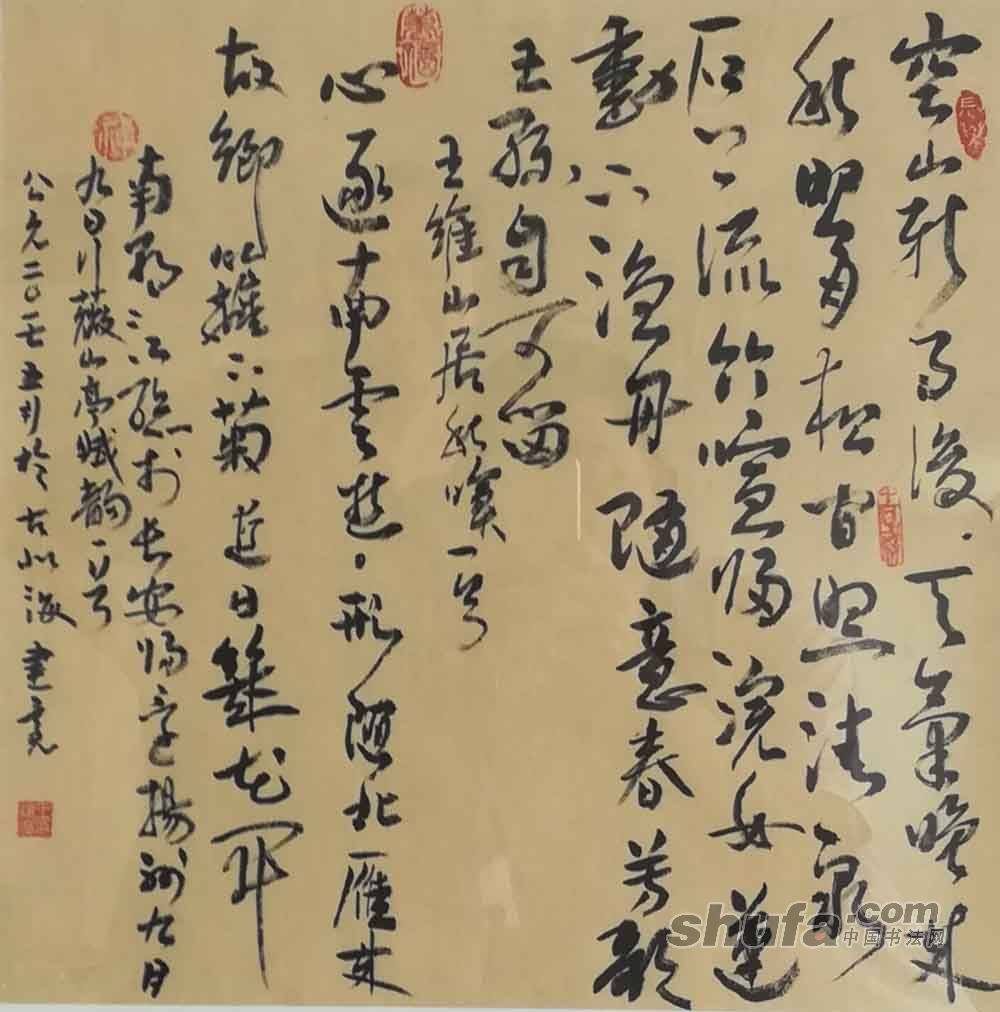 空山新雨後天氣晚来
秋明月松间照清泉
石上流竹喧歸浣女蓮
動下漁舟隨意春芳歇
王孫自可留
王維山居秋暝一首
心逐南雲逝形隨北雁来
故鄉籬下菊日幾花開
南朝江總於長安歸還揚州九月
九日行薇山亭賦韻一首
公元二〇一七五月於古北海
shufa.com
中国书法网